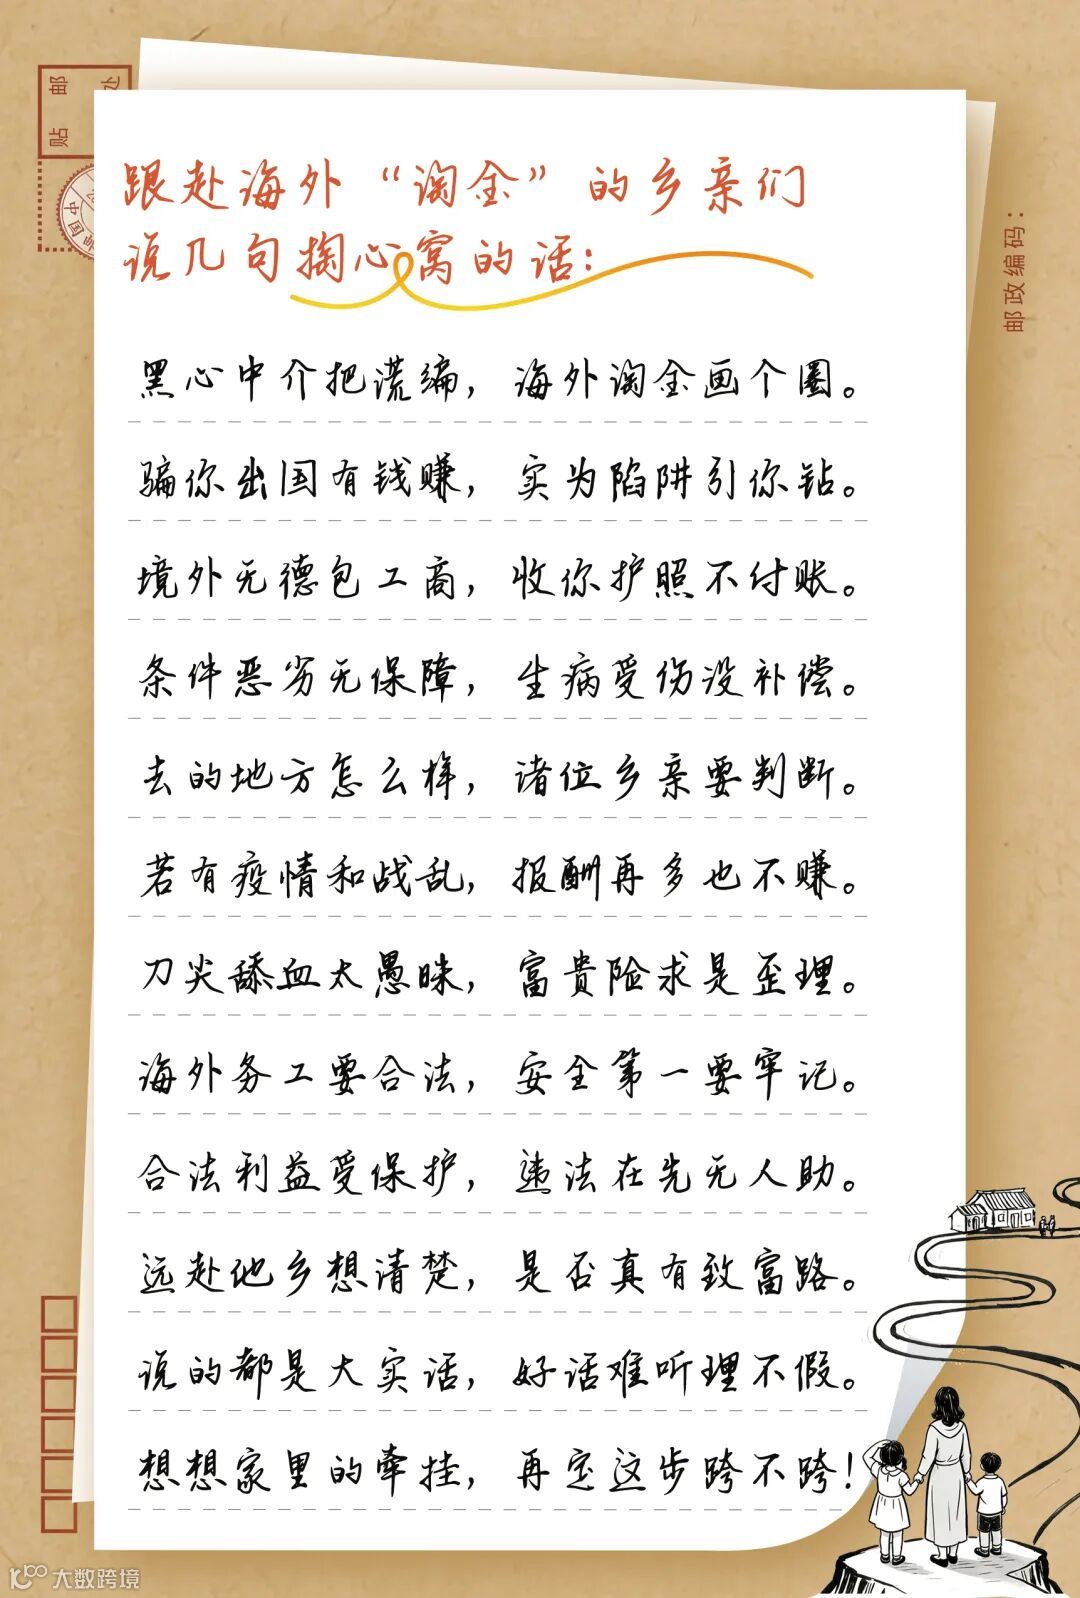 贴邮
处
中国邮
邮政编码：
跟赴海外“淘金”的乡亲们
说几句掏心窝的话：
黑心中介把谎编，海外淘金画个圈。
骗你出国有钱赚，实为陷阱引你钻。
境外无德包工商，收你护照不付账。
条件恶劣无保障，生病受伤没补偿。
去的地方怎么样，诸位乡亲要判断。
若有疫情和战乱，报酬再多也不赚。
刀尖舔血太愚昧，富贵险求是歪理。
海外务工要合法，安全第一要牢记。
合法利益受保护，违法在先无人助。
远赴他乡想清楚，是否真有致富路。
说的都是大实话，好话难听理不假。
想想家里的牵挂，再定这步跨不跨！
大数跨境